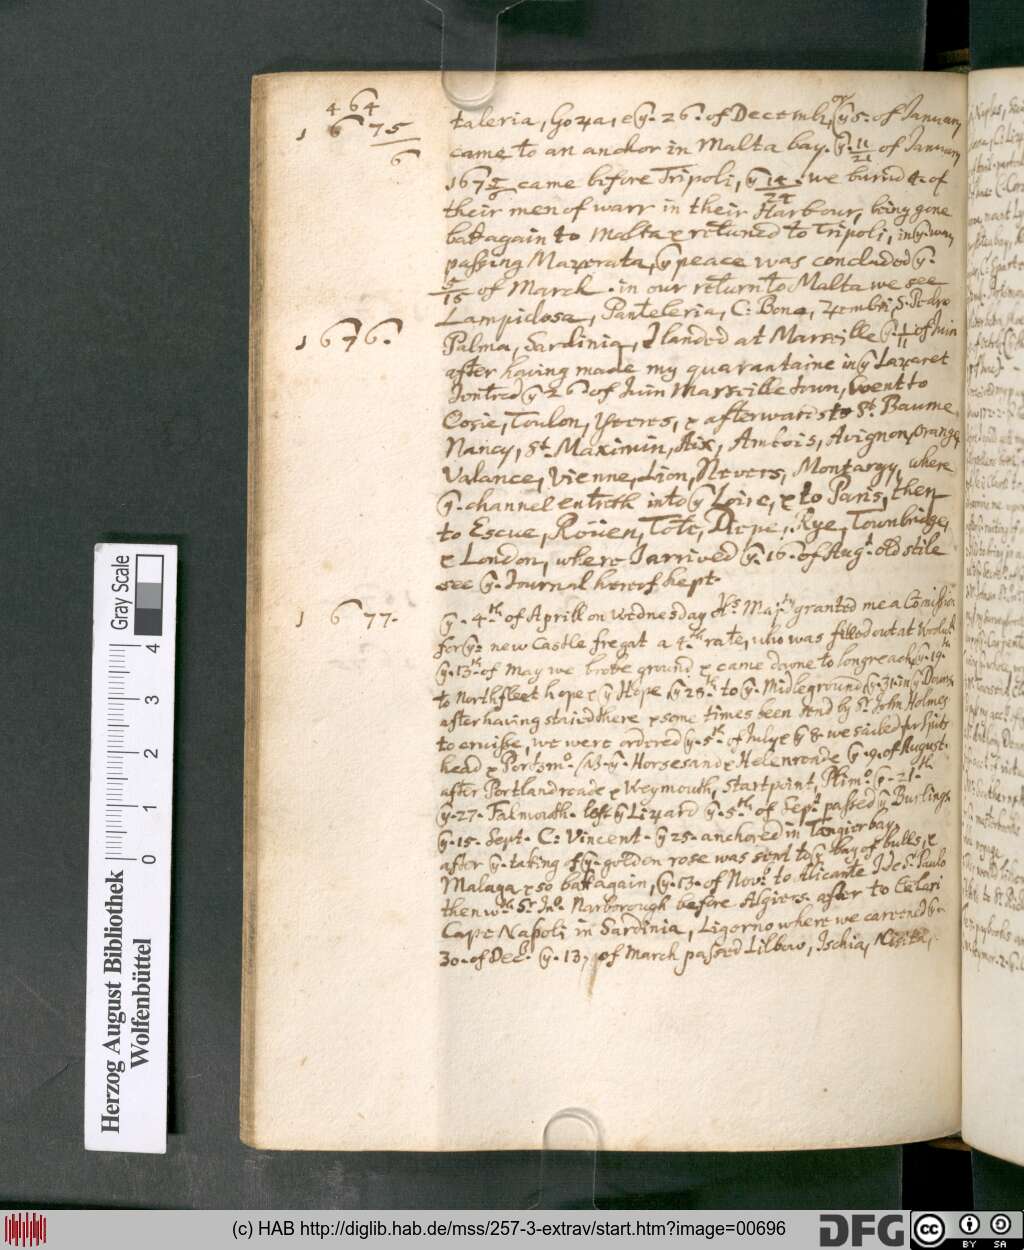 464
1675/6
taleria, Goza, e ye. 26. of Decemb, or ye 5. of January
came to an anchor in Malta bay. ye. 11/21 of January
1675/6 came before Tripoli, ye 14/24. we burnd 4. of
their men of warr in their Harbour, being gone
bak again to Malta & returned to Tripoli, in ye way
passing Mazerata, ye peace was concluded ye.
5/15 of March. in our return to Malta we see
1676.
Lampidosa, Panteleria, C: Bona, Zembri, S. Pedro
Palma, Sardinia, I landed at Marseille ye 1/11 of Juin
after having made my quarantaine in ye Lazaret
I entred ye 26 of Juin Marseille town, went to
Toulon, & afterwards to St. Baume,
Nancy, St. Maximin, Aix, Ambois, Avignon, Orange,
Valance, Vienne, Lion, Nevers, Montargy, where
ye. channel entreth into ye Loire, & to Paris, then
to Escue, Roüen, Tote, Diepe, Rye, Townbridge,
& London, where I arrived ye. 16. of Aug. old stile
see ye. Journal hereof kept.
1677.
ye. 4th of Aprill on Wednesday his May.ty granted me a Comission
for ye new Castle fregat a 4th rate, who was fitted out at Woolw
ye. 13th of May we broke ground & came downe to longreach, ye. 19th
to Northfleet hope & ye Hope, ye 28th to ye. Midleground, ye. 31. in ye Downs
after having staied there & some times been send by Sr. John Holmes
to cruisse, we were ordered ye. 5th of July & ye 8. we sailed for Spit
head & Portsmo. ye. Horse sand & Helen roade ye. 9. of August.
after Portland roade & Weymouth, Startpoint, Plimo. ye. 21th
ye. 27. Falmouth. left ye Lizard ye. 5th of Sept. passed ye Burlings
ye. 15. Sept. C: Vincent. ye 25. anchored in Tangier bay.
after ye. taking of ye. golden rose was sent to ye bay of bulls, &
Malaga & so bak again, ye. 13. of Nov. to Alicante, I de S. Paulo
then wth Sr. Jno. Narborough before Algiers after to Calari
Cape Napoli in Sardinia, Ligorno where we careened ye.
30. of Dec. ye. 13, of March passed Lilbow, Ischia, Nisita,
Herzog August Bibliothek
Wolfenbüttel
Gray Scale
0 1 2 3 4
(c) HAB http://diglib.hab.de/mss/257-3-extrav/start.htm?image=00696
DFG
CC
BY SA